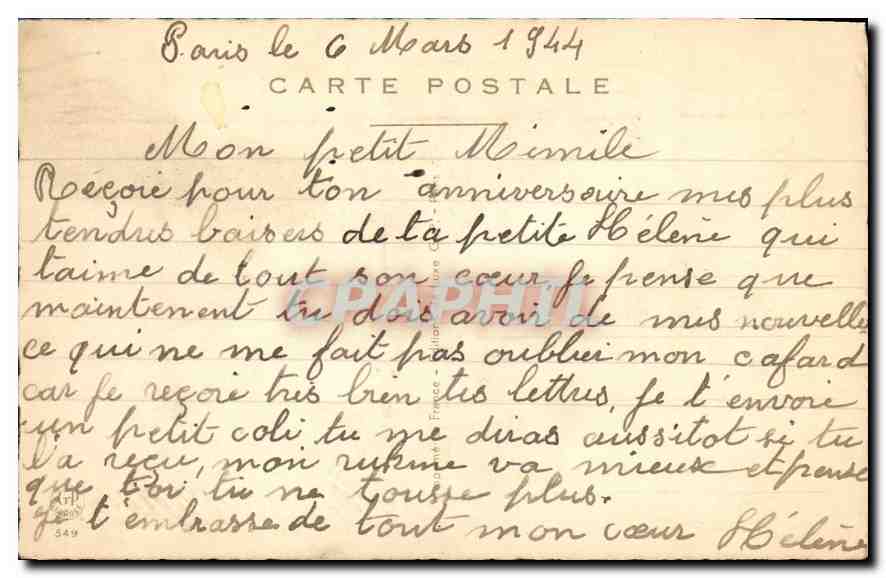 Paris le 6 Mars 1944
CARTE POSTALE
Mon petit Mimile
Réçoie pour ton anniversaire mes plus
tendres baisers de ta petite Hélène qui
t'aime de tout son cœur, Je pense que
maintenent tu dois avoir de mes nouvelles
ce qui ne me fait pas oublier mon cafard
car Je reçoie très bien tes lettres, Je t'envoie
un petit coli tu me diras aussitot si tu
l'a reçu, mon rhume va mieux et pense
que toi tu ne tousse plus.
Je t'embrasse de tout mon cœur Hélène
549
CPAPHIL